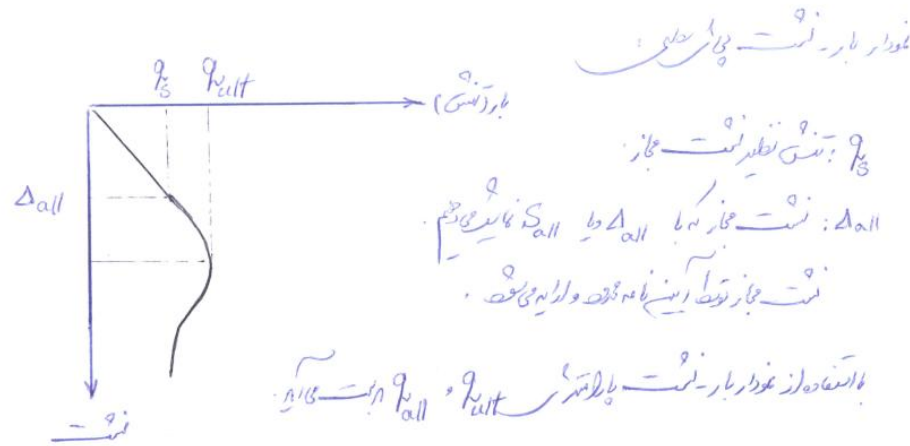 نمودار بار - نشست پی‌های سطحی:
q_s   q_ult
بار (تنش)
q_s : تنش نظیر نشست مجاز.
Δall
Δall : نشست مجاز که با Δall و یا Sall نمایش می‌دهیم.
نشست مجاز توسط آیین نامه و ارایه می‌شود.
با استفاده از نمودار بار - نشست پارامترهای q_ult و q_all بدست می‌آید.
نشست